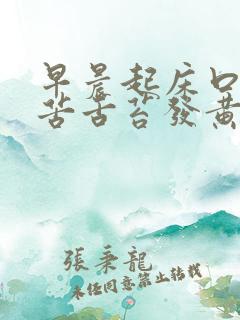 早晨起床口
苦舌苔發黃
張秉龍
未任同意禁止转载